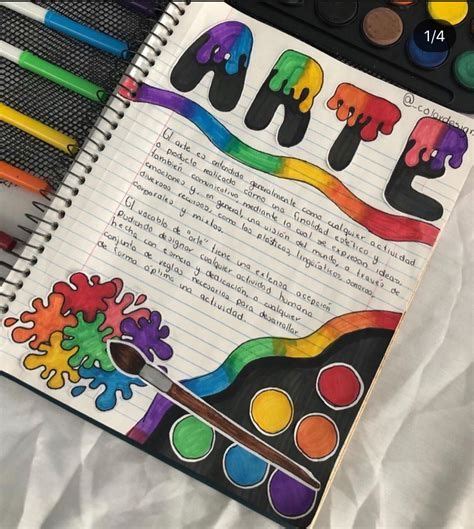 1/4
ARTE
@_colordesign
El arte es entendido generalmente como cualquier actividad
o producto realizado con una finalidad estética y
también comunicativa mediante la cual se expresan ideas,
emociones y, en general, una visión del mundo, a través de
diversos recursos, como los plásticos, lingüísticos, sonoros,
corporales y mixtos.
El vocablo de "arte" tiene una extensa acepción
pudiendo designar cualquier actividad humana
hecha con esmero y dedicación o cualquier
conjunto de reglas necesarias para desarrollar
de forma óptima una actividad.